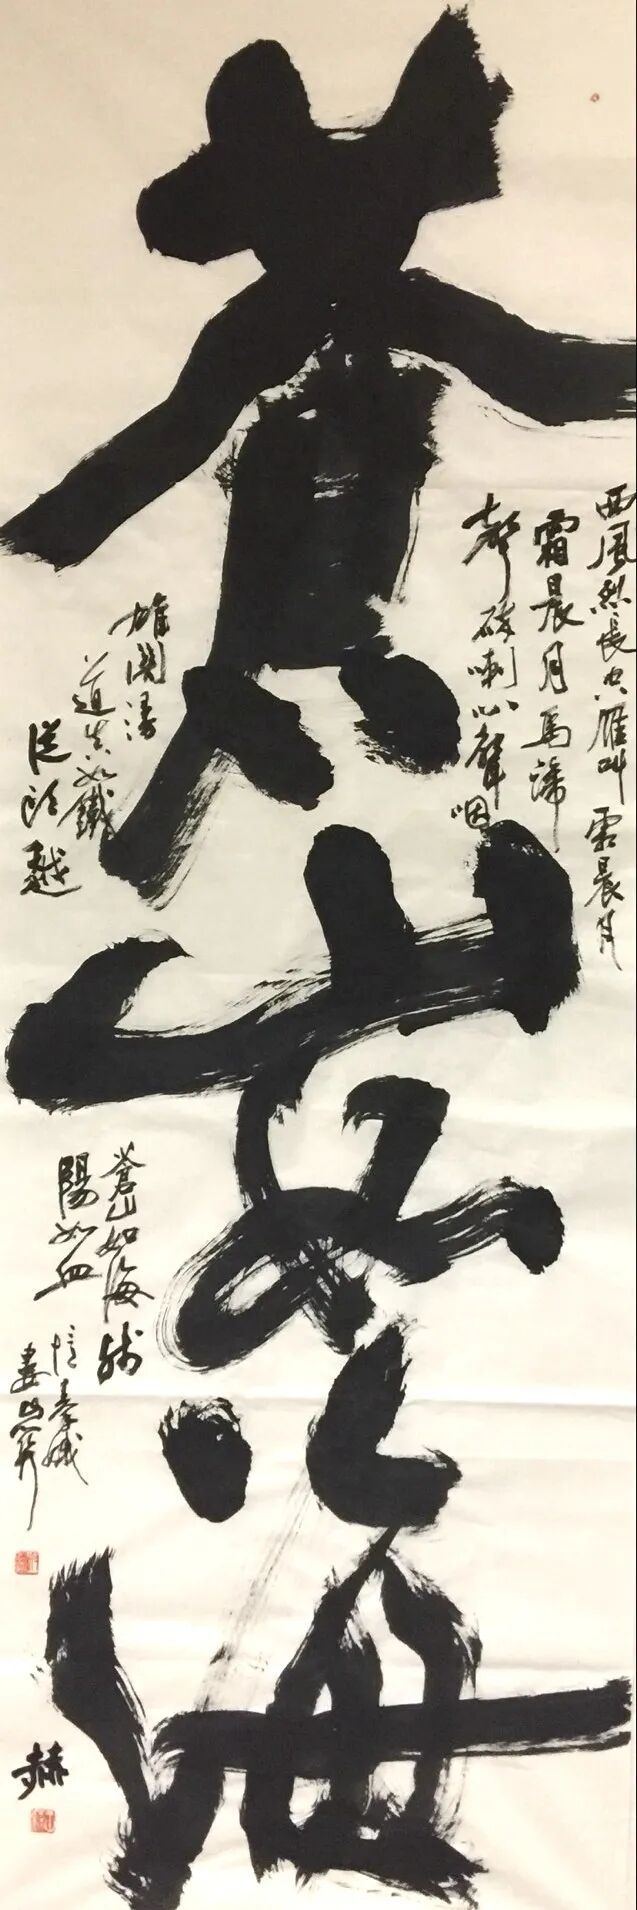 蒼山如海
西風烈長空雁叫霜晨月
霜晨月馬蹄
聲碎喇叭聲咽
雄関漫
道真如鐵
從頭越
蒼山如海殘
陽如血
憶秦娥
婁山関
赫